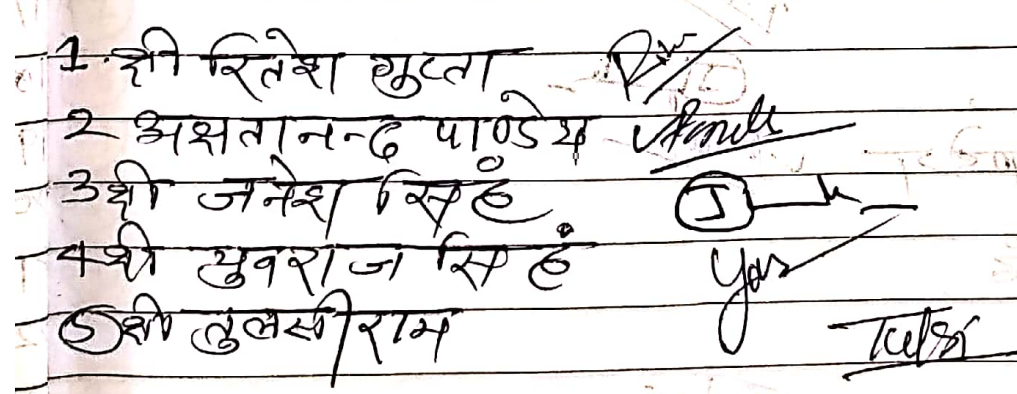 1. श्री रितेश गुप्ता
2 अक्षतानन्द पाण्डेय
3 श्री जनेश सिहं J
4 श्री युवराज सिहं Yas
5 श्री तुलसीराम Tulsi